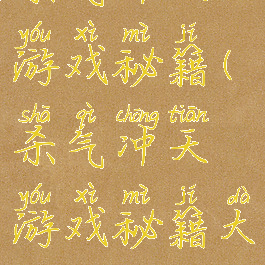 yóu xì mì jí
游戏秘籍(
shā qì chōng tiān
杀气冲天
yóu xì mì jí dà
游戏秘籍大